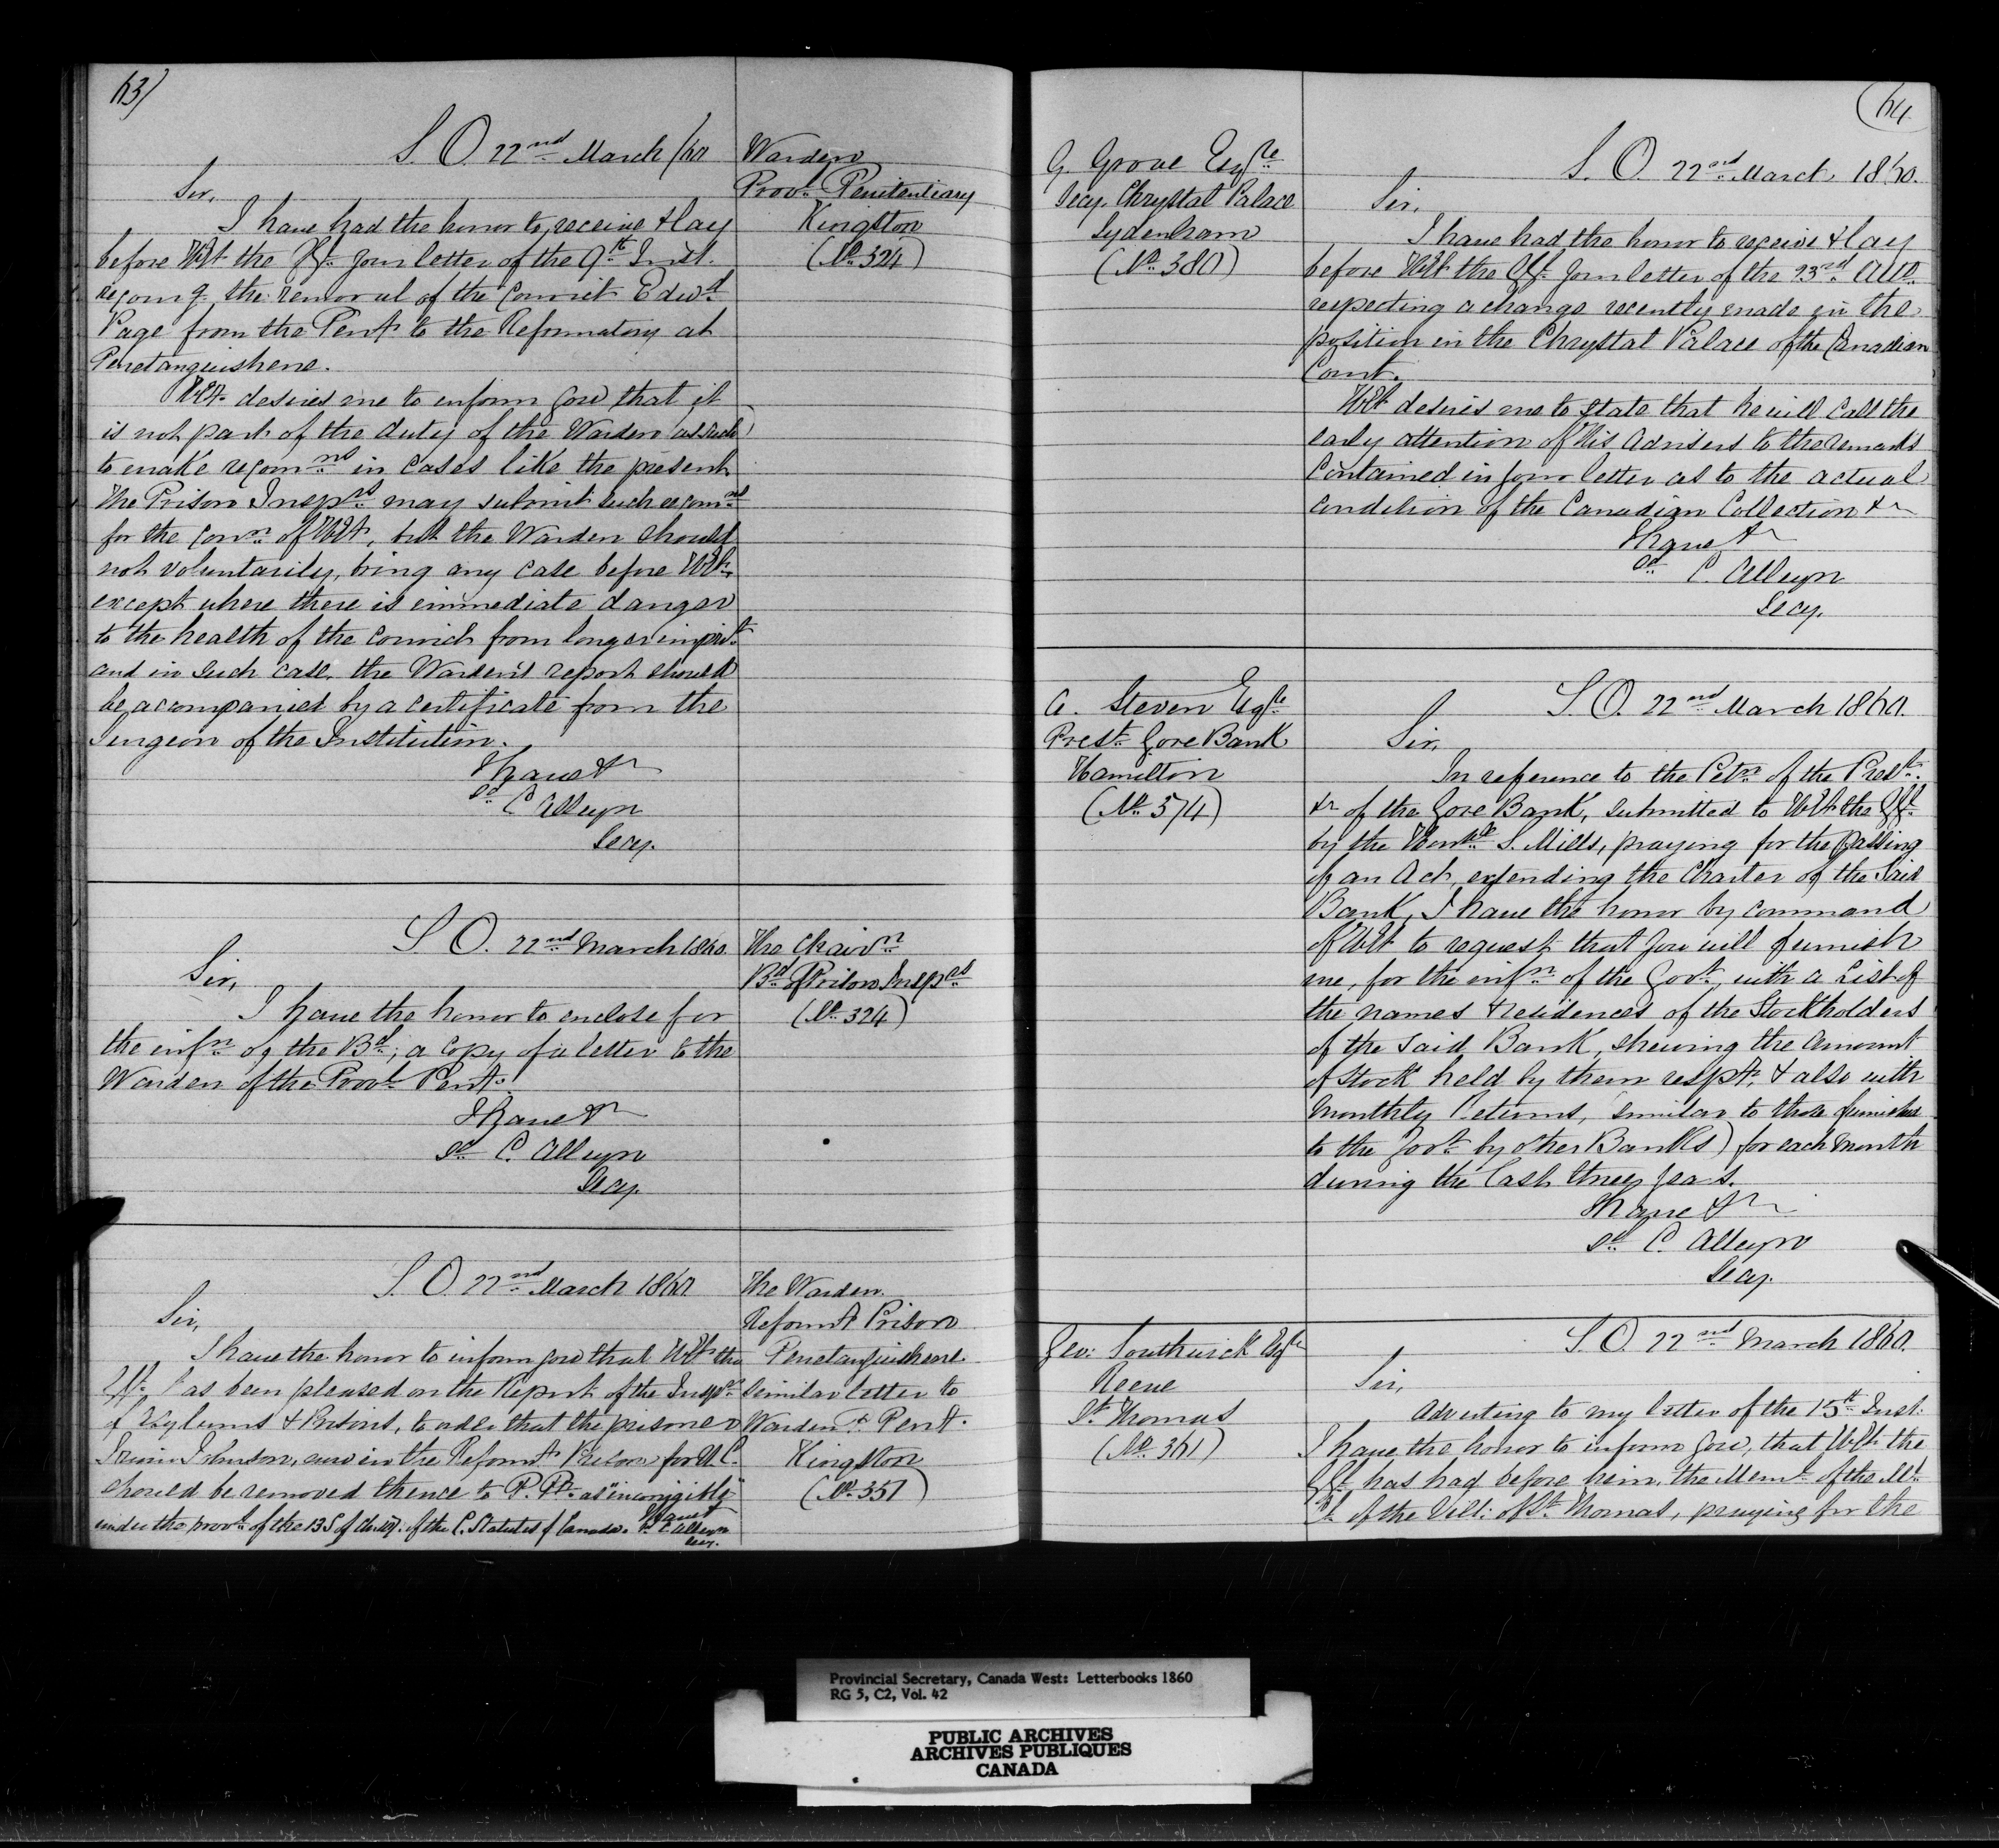 63)
S. O. 22nd March /60
Warden
Provl. Penitentiary
Kingston
(No. 324)
Sir,
I have had the honor to receive & lay
before HEt the GGl. your letter of the 9th Inst.
recomg. the removal of the Convict Edwd.
Page from the Pent. to the Reformatory at
Penetanguishene.
HEt. desires me to inform you that it
is not part of the duty of the Warden (as such)
to make recomns. in cases like the present
The Prison Insprs. may submit such recomns.
for the conn. of HEt., but the Warden should
not voluntarily, bring any case before HEt.
except where there is immediate danger
to the health of the convict from longer imprt.
and in such case, the Warden's report should
be acompanied by a certificate from the
Surgeon of the Institution.
I have &c
Sd. C Alleyn
Secy.
S. O. 22nd March 1860.
The Chairn.
Bd. of Prison Insprs.
(No. 324)
Sir,
I have the honor to enclose for
the infn. of the Bd., a copy of a letter to the
Warden of the Provl. Pent.
I have &c
Sd. C. Alleyn
Secy.
S. O. 22nd March 1860
The Warden
Reformt. Prison
Penetanguishene.
Similar letter to
Warden P. Pent.
Kingston
(No. 351)
Sir,
I have the honor to inform you that HEt. the
GGl. has been pleased on the Report of the Insprs.
of Asylums & Prisons, to order that the prisoner
Johnson, now in the Reformt. Prison for U.C.
should be removed thence to P. Pt. as "incorrigible"
under the provs. of the 13 S of Ch. of the C. Statutes of Canada. I have &c
Sd. C Alleyn
Secy.
64
G. Grove Esqre.
Secy. Chrystal Palace
Sydenham
(No. 380)
S. O. 22nd March 1860.
Sir,
I have had the honor to receive & lay
before HEt the GGl. your letter of the 23rd Ulto.
respecting a change recently made in the
position in the Chrystal Palace of the Canadian
Court.
HEt desires me to state that he will call the
early attention of his Advisers to the remarks
contained in your letter as to the actual
condition of the Canadian Collection &c
I have &c
Sd. C. Alleyn
Secy.
A. Steven Esqre.
Prest. Gore Bank
Hamilton
(No. 574)
S. O. 22nd March 1860.
Sir,
In reference to the Petn. of the Prest.
&c of the Gore Bank, submitted to HEt the GGl.
by the Honble. S. Mills, praying for the passing
of an Act, extending the Charter of the said
Bank, I have the honor by command
of HEt to request that you will furnish
me, for the infn. of the Govt., with a List of
the names & residences of the Stockholders
of the said Bank, shewing the amount
of Stock held by them respy., & also with
Monthly Returns, (similar to those furnished
to the Govt. by other Banks) for each month
during the last three years.
I have &c
Sd. C. Alleyn
Secy.
Geo: Southwick Esqre
Reeve
St. Thomas
(No. 361)
S. O. 22nd March 1860.
Sir,
Adverting to my letter of the 15th Inst.
I have the honor to inform you, that HEt. the
GGl. has had before him, the Meml. of the Ml.
Cl. of the Vill: of St. Thomas, praying for the
Provincial Secretary, Canada West: Letterbooks 1860
RG 5, C2, Vol. 42
PUBLIC ARCHIVES
ARCHIVES PUBLIQUES
CANADA